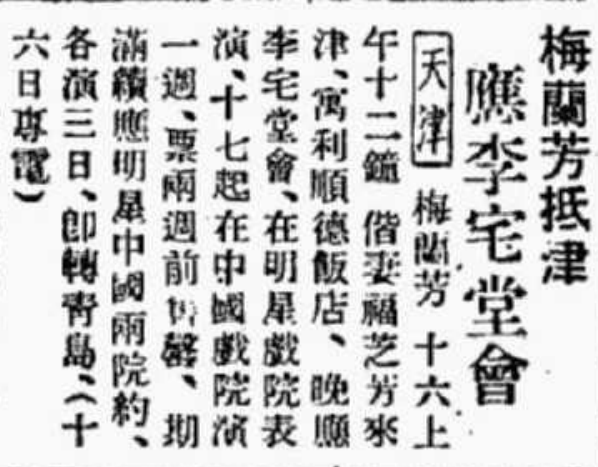 梅蘭芳抵津
應李宅堂會
天津 梅蘭芳 十六上
午十二鐘 偕妻福芝芳來
津、寓利順德飯店、晚應
李宅堂會、在明星戲院表
演、十七起在中國戲院演
一週、票兩週前售罄、期
滿續應明星中國兩院約、
各演三日、卽轉靑島、（十
六日專電）